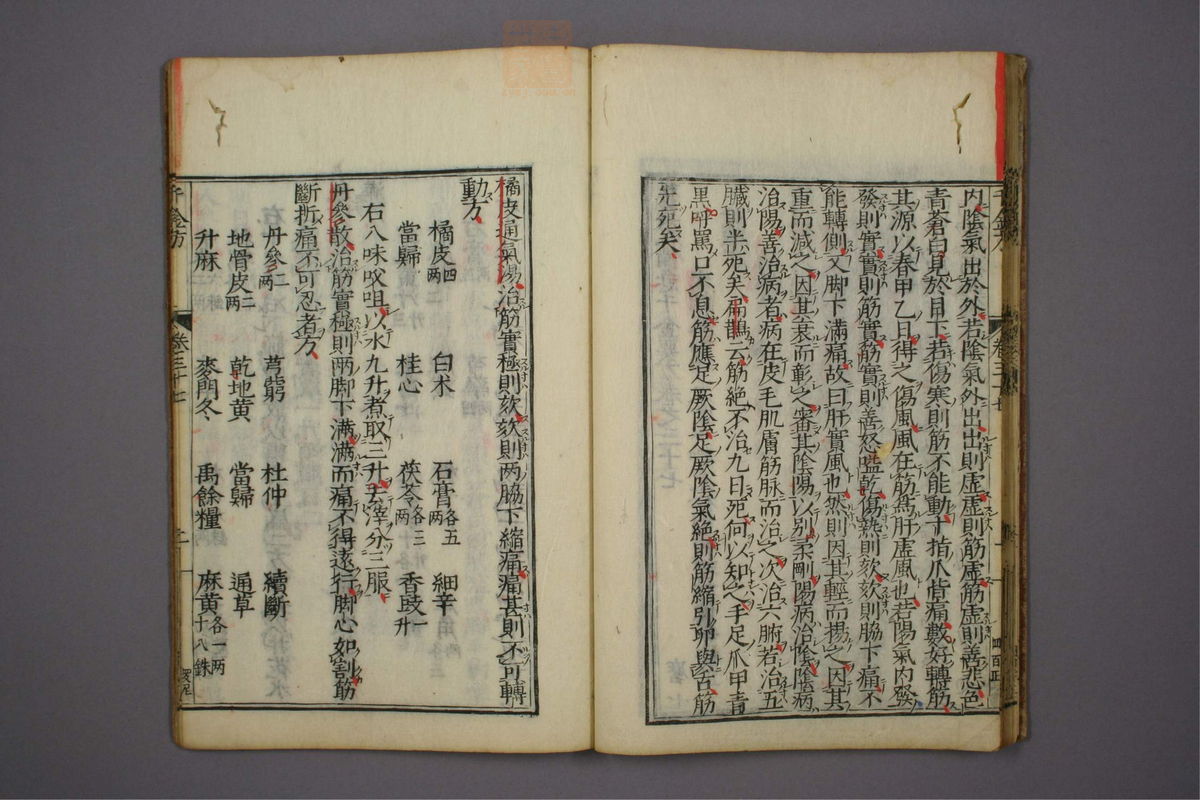 内陰氣出於外者陰氣外出出則虛虛則筋虛筋虛則善悲色
青蒼白見於目下若傷寒則筋不能動十指爪皆痛數好轉筋
其源以春甲乙日得之傷風風在筋爲肝虛風也若陽氣内發
發則實實則筋實筋實則善怒嗌乾傷熱則欬欬則脇下痛不
能轉側又脚下滿痛故曰肝實風也然則因其輕而揚之因其
重而減之因其衰而彰之審其陰陽以別柔剛陽病治陰陰病
治陽善治病者病在皮毛肌膚筋脉而治之次治六腑若治五
臟則半死矣扁鵲云筋絕不治九日死何以知之手足爪甲青
黑呼罵口不息筋應足厥陰足厥陰氣絕則筋縮引卵與舌筋
先死矣
橘皮通氣湯治筋實極則欬欬則兩脇下縮痛痛甚則不可轉
動方
橘皮四兩 白朮 石膏各五兩 細辛
當歸 桂心 茯苓各三兩 香豉一升
右八味㕮咀以水九升煮取三升去滓分三服
丹參散治筋實極則兩脚下滿滿而痛不得遠行脚心如割筋
斷折痛不可忍者方
丹參二兩 芎藭 杜仲 續斷
地骨皮二兩 乾地黄 當歸 通草
升麻 麥門冬 禹餘糧 麻黄各一兩十八銖
千金方 卷三十七 二